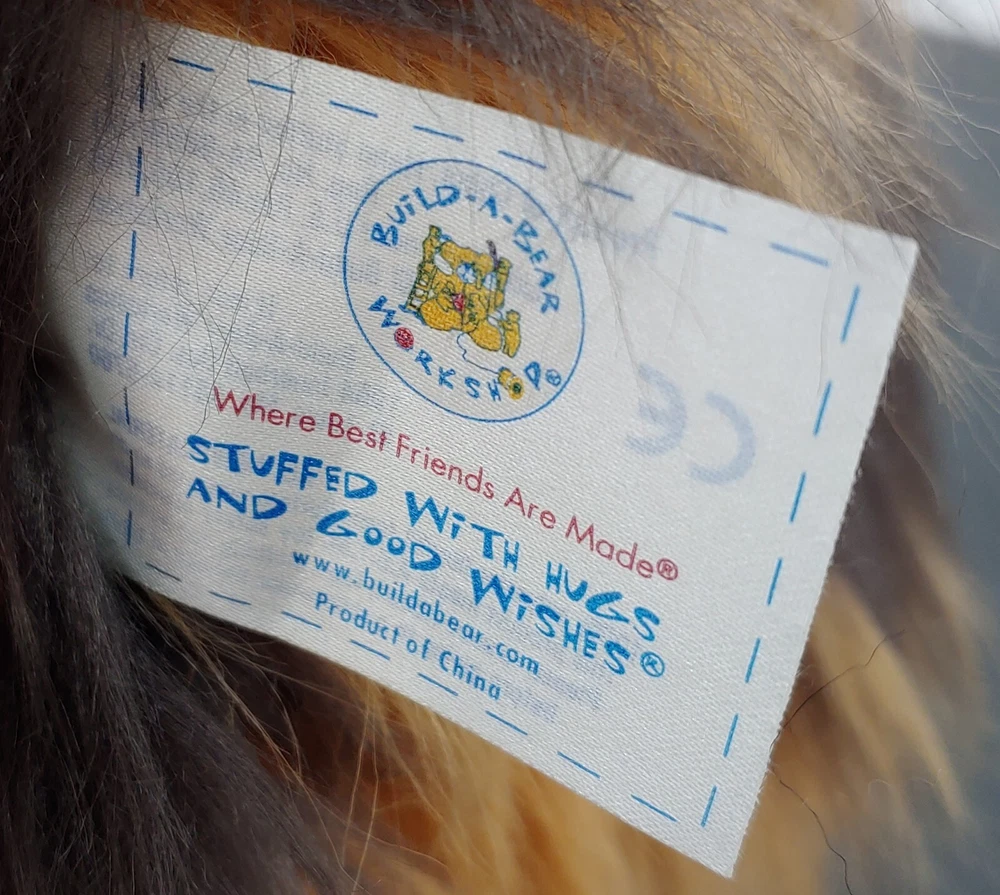 BUiLD-A-BEAR
WORKSHOP®
Where Best Friends Are Made®
STUFFED WiTH HUGS
AND GOOD WiSHES®
www.buildabear.com
Product of China
CE